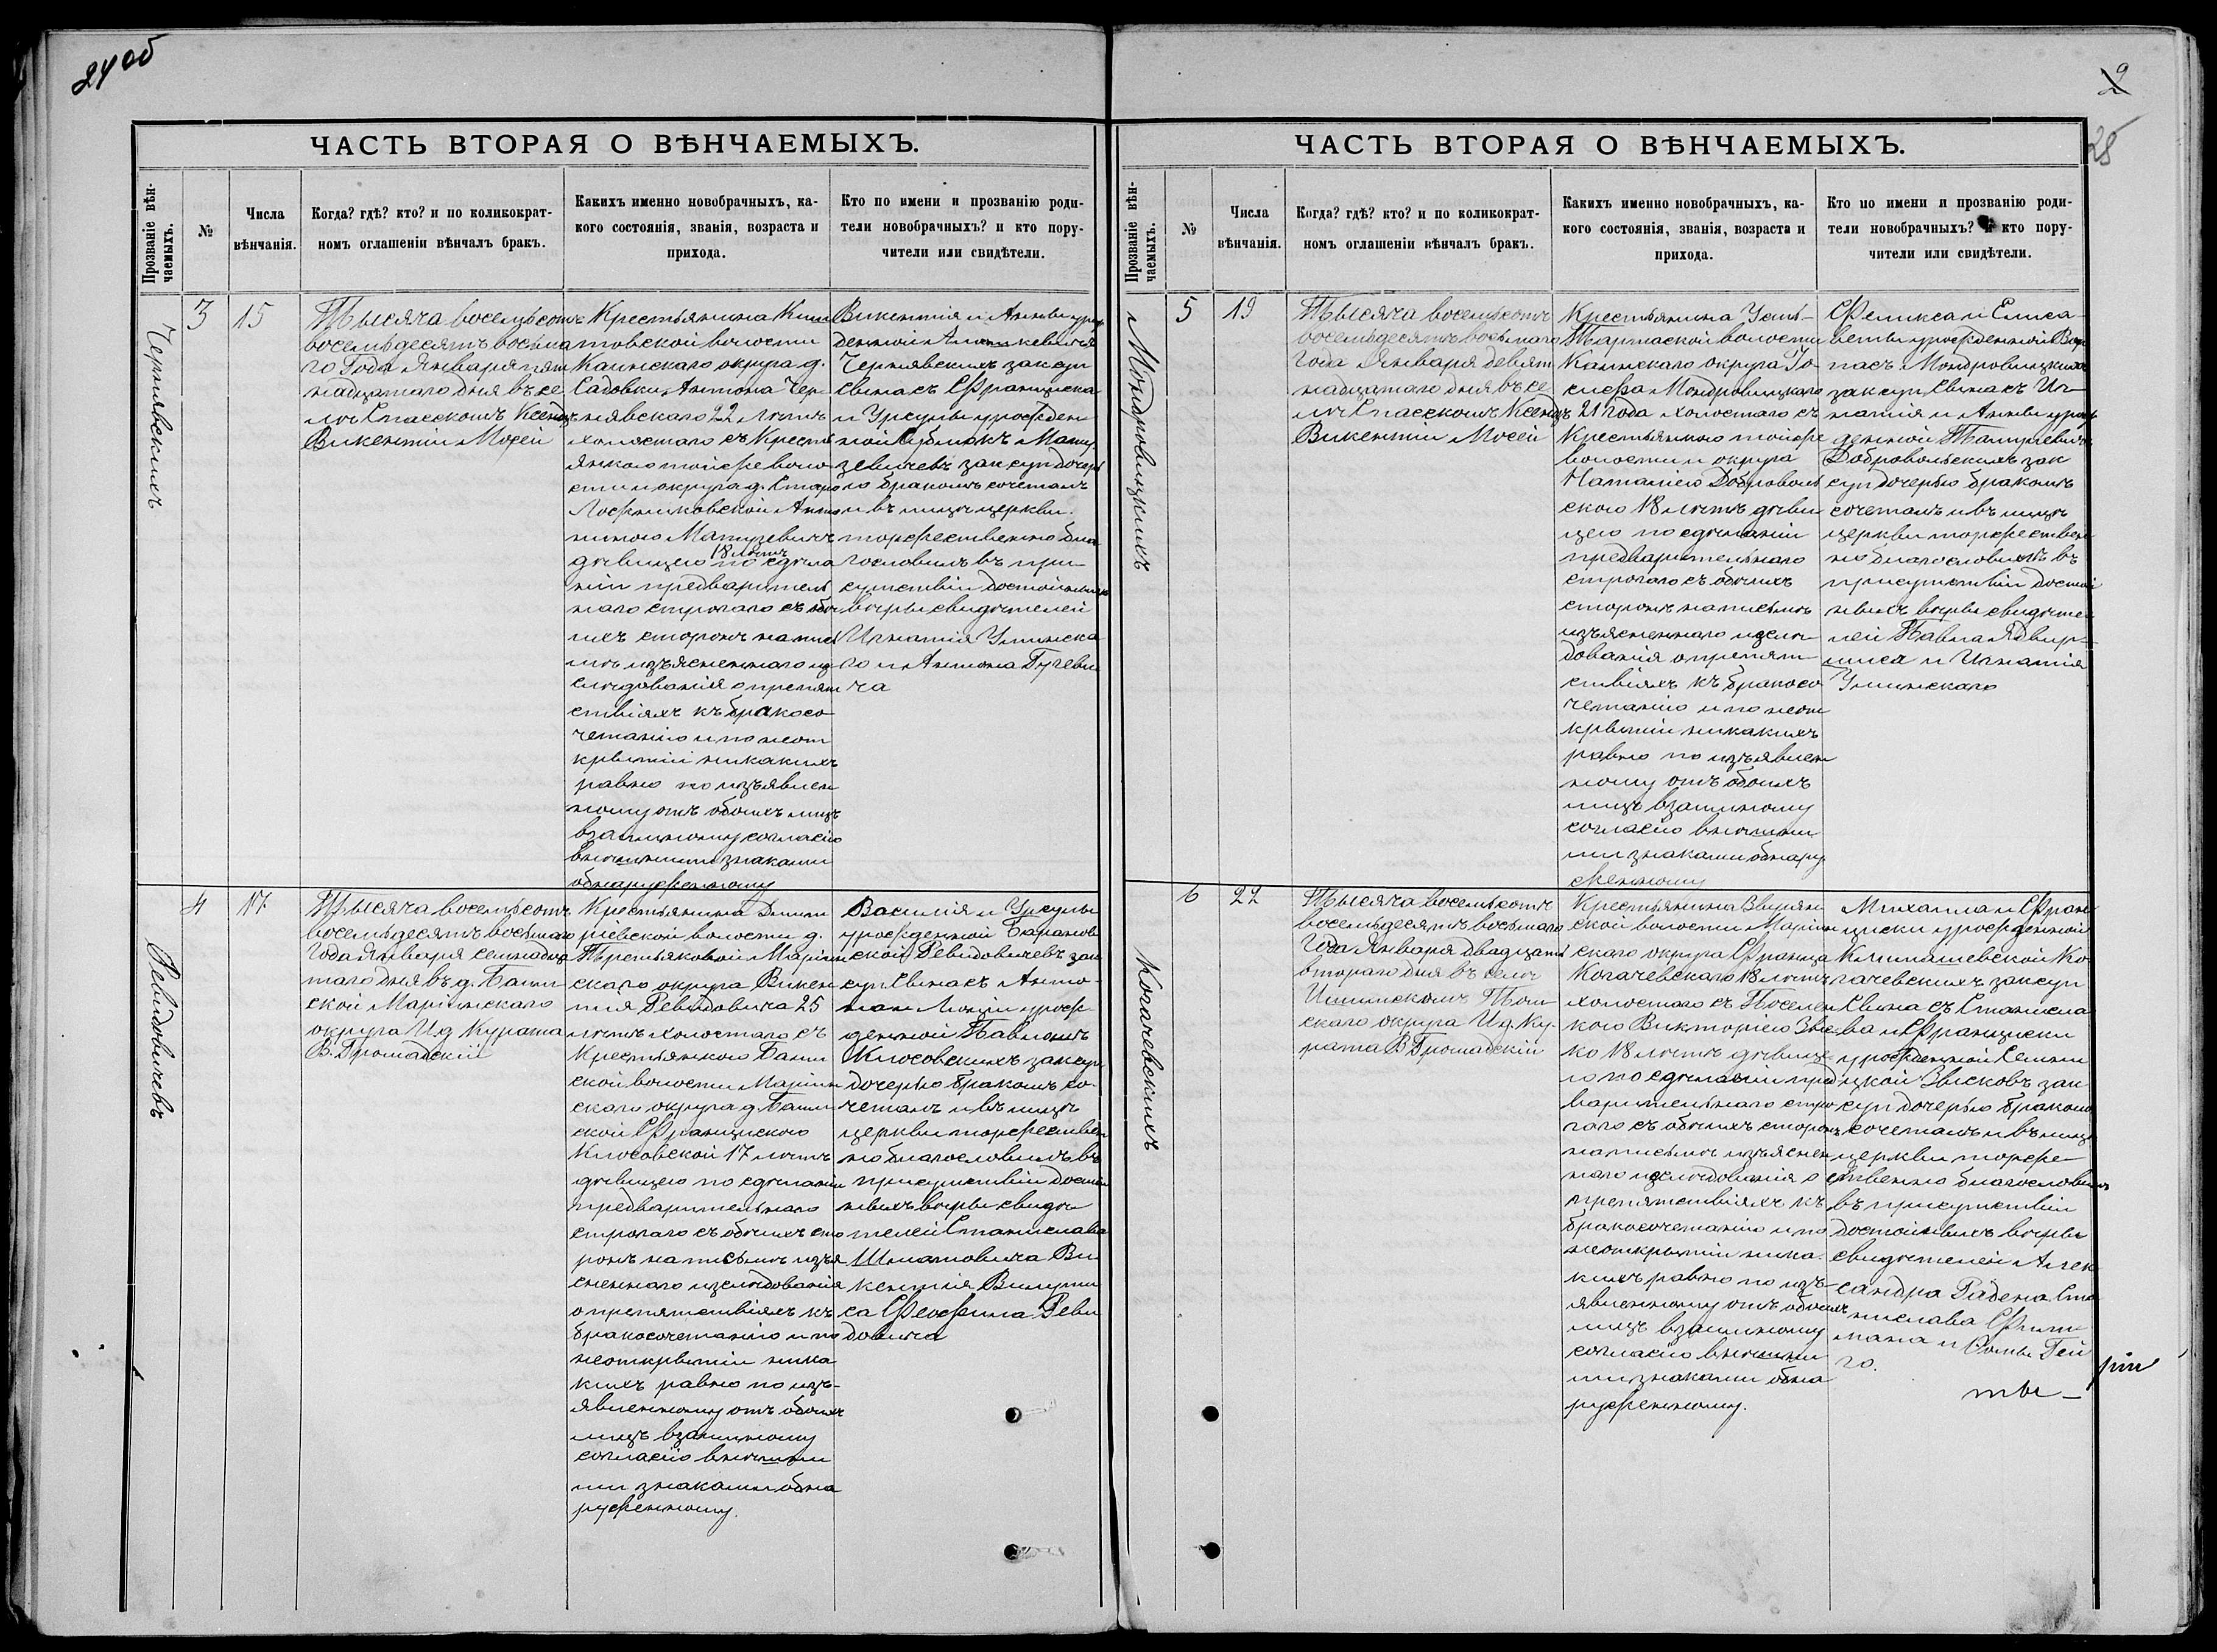 24 об
ЧАСТЬ ВТОРАЯ О ВѢНЧАЕМЫХЪ.
Прозваніе вѣн-
чаемыхъ.
№
Числа
вѣнчанія.
Когда? гдѣ? кто? и по коликократ-
номъ оглашеніи вѣнчалъ бракъ.
Какихъ именно новобрачныхъ, ка-
кого состоянія, званія, возраста и
прихода.
Кто по имени и прозванію роди-
тели новобрачныхъ? и кто пору-
чители или свидѣтели.
Чернявскихъ
3
15
Тысяча восемьсотъ
восемьдесятъ восьма
го Года Января пят
надцатаго дня въ се
лѣ Спасскомъ Ксендзъ
Викентій Мосей
Крестьянина Киш
товской волости
Каинскаго округа д.
Садовки Антона Чер
нявскаго 22 лѣтъ
холостаго съ Кресть
янкою тойже воло
сти и округа д. Старо
Ложниковской Анто
ниною Матузевичъ
18 лѣтъ
дѣвицею по сдѣла
ніи предваритель
наго строгаго съ обо
ихъ сторонъ на пись
мѣ изъясненнаго из
слѣдованія о препят
ствіяхъ къ бракосо
четанію и по неот
крытіи никакихъ
равно по изъявлен
ному отъ обоихъ лицъ
взаимному согласію
внѣшними знаками
обнаруженному
Викентія и Анны урож
денной
Чернявскихъ закон
Сына съ Франциска
и Урсулы урожден
ной Мату
зевичевъ закон дочерь
ю бракомъ сочеталъ
и въ лицѣ церкви
торжественно бла
гословилъ въ при
сутствіи достойныхъ
вѣры свидѣтелей
Игнатія Улинска
го и Антона Гуреви
ча
Ревидовичевъ
4
17.
Тысяча восемьсотъ
восемьдесятъ восьмаго
Года Января семнадца
таго дня въ д. Баим
ской Маріинскаго
округа И д Курата
В. Громадскій
Крестьянина Дмит
ріевской волости д.
Третьяковой Маріин
скаго округа Викен
тія Ревидовича 25
лѣтъ холостаго съ
Крестьянкою Баим
ской волости Маріин
скаго округа д. Баим
ской Францискою
Клюсовской 17 лѣтъ
дѣвицею по сдѣланіи
предварительнаго
строгаго съ обоихъ сто
ронъ на письмѣ изъя
сненнаго изслѣдованія
о препятствіяхъ къ
бракосочетанію и по
неоткрытіи ника
кихъ равно по изъ-
явленному отъ обоихъ
лицъ взаимному
согласію внѣшни
ми знаками обна
руженному.
Василія и Урсулы
урожденной Баранов
ской Ревидовичевъ зак
суп. Сына съ Анто-
на и Люціи урож
денной Павлючъ
Клюсовскихъ зак суп
дочерью бракомъ со-
четалъ и въ лицѣ
церкви торжествен
но благословилъ въ
присутствіи достой
ныхъ вѣры свидѣ
телей Станислава
Шматовича Ви
кентія
са Феофила Реви
довича
9
25
ЧАСТЬ ВТОРАЯ О ВѢНЧАЕМЫХЪ.
Прозваніе вѣн-
чаемыхъ.
№
Числа
вѣнчанія.
Когда? гдѣ? кто? и по коликократ-
номъ оглашеніи вѣнчалъ бракъ.
Какихъ именно новобрачныхъ, ка-
кого состоянія, званія, возраста и
прихода.
Кто по имени и прозванію роди-
тели новобрачныхъ? и кто пору-
чители или свидѣтели.
Мондровицкихъ
5
19
Тысяча восемьсотъ
восемьдесятъ восьмаго
Года Января девят
надцатаго дня въ се
лѣ Спасскомъ Ксендзъ
Викентій Мосей
Крестьянина Усть-
Тартаской волости
Каинскаго округа Іо
сифа Мондровицкаго
21 Года холостаго съ
Крестьянкою тойже
волости и округа
Наталіею Доброволь
скою 18 лѣтъ дѣви
цею по сдѣланіи
предварительнаго
строгаго съ обоихъ
сторонъ на письмѣ
изъясненнаго изслѣ
дованія о препят
ствіяхъ къ бракосо
четанію и по неот
крытіи никакихъ
равно по изъявлен
ному отъ обоихъ
лицъ взаимному
согласію внѣшни
ми знаками обнару
женному
Феликса и Елиса
веты урожденной
Мондровицкихъ
зак суп Сына съ Иг
натія и Анны урож
денной
Добровольскихъ зак
суп дочерью бракомъ
сочеталъ и въ лицѣ
церкви торжествен
но благословилъ въ
присутствіи достой
ныхъ вѣры свидѣте
лей Павла Ядвир-
шиса и Игнатія
Улинскаго
Когачевскихъ
6
22
Тысяча восемьсотъ
восемьдесятъ восьмаго
Года Января двадцать
втораго дня въ селѣ
Ишимскомъ Том
скаго округа И д. Ку
рата В Громадскій
Крестьянина
ской волости Маріин
скаго округа Франца
Когачевскаго 18 лѣтъ
холостаго съ Поселен
кою Викторіею Звыс
ко 18 лѣтъ дѣвице
ю по сдѣланіи пред
варительнаго стро
гаго съ обоихъ сторонъ
на письмѣ изъяснен
наго изслѣдованія о
препятствіяхъ къ
бракосочетанію и по
неоткрытіи ника
кихъ равно по изъ-
явленному отъ обоихъ
лицъ взаимному
согласію внѣшни
ми знаками обна
руженному.
Михаила и Фран
циски урожденной
Климашевской Ко
гачевскихъ зак суп
Сына съ Станисла
ва и Франциски
урожденной
Звысковъ зак
суп дочерью бракомъ
сочеталъ и въ лицѣ
церкви торже
ственно благословилъ
въ присутствіи
достойныхъ вѣры
свидѣтелей Алек
сандра Радена Ста
нислава
мана и Гей
го.